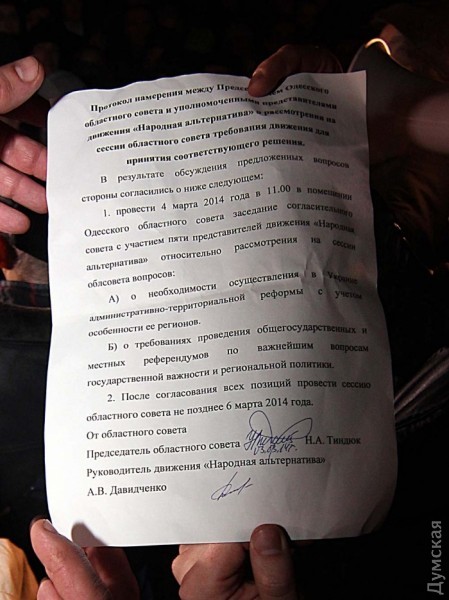 Протокол намерения между Председателем Одесского
областного совета и уполномоченными представителями
движения «Народная альтернатива» о рассмотрении на
сессии областного совета требования движения для
принятия соответствующего решения.
В результате обсуждения предложенных вопросов
стороны согласились о ниже следующем:
1. провести 4 марта 2014 года в 11.00 в помещении
Одесского областного совета заседание согласительного
совета с участием пяти представителей движения «Народная
альтернатива» относительно рассмотрения на сессии
облсовета вопросов:
А) о необходимости осуществления в Украине
административно-территориальной реформы с учетом
особенности ее регионов.
Б) о требованиях проведения общегосударственных и
местных референдумов по важнейшим вопросам
государственной важности и региональной политики.
2. После согласования всех позиций провести сессию
областного совета не позднее 6 марта 2014 года.
От областного совета
Председатель областного совета Н.А. Тиндюк
03.03.14г.
Руководитель движения «Народная альтернатива»
А.В. Давидченко
Думская